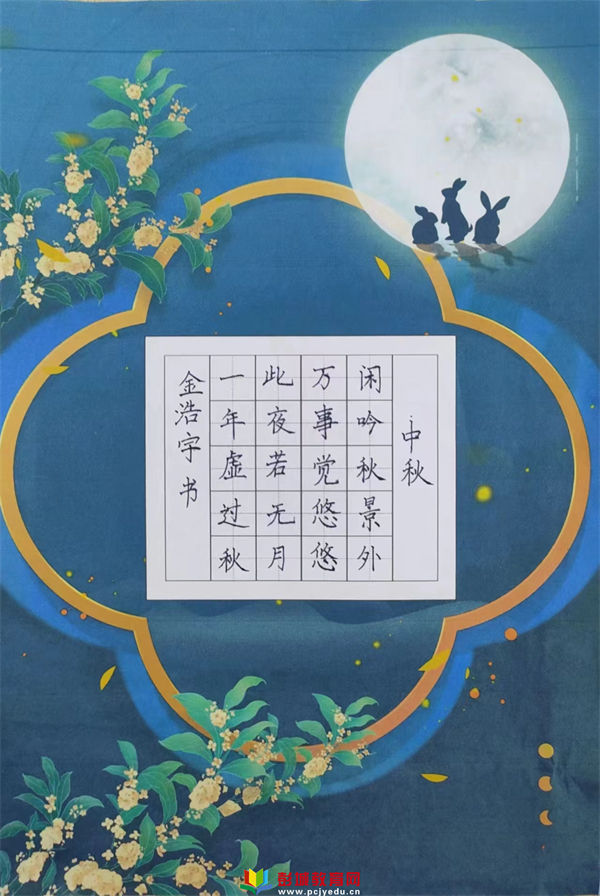 中秋
闲吟秋景外
万事觉悠悠
此夜若无月
一年虚过秋
金浩宇书
彭城教育网
www.pcjyedu.cn